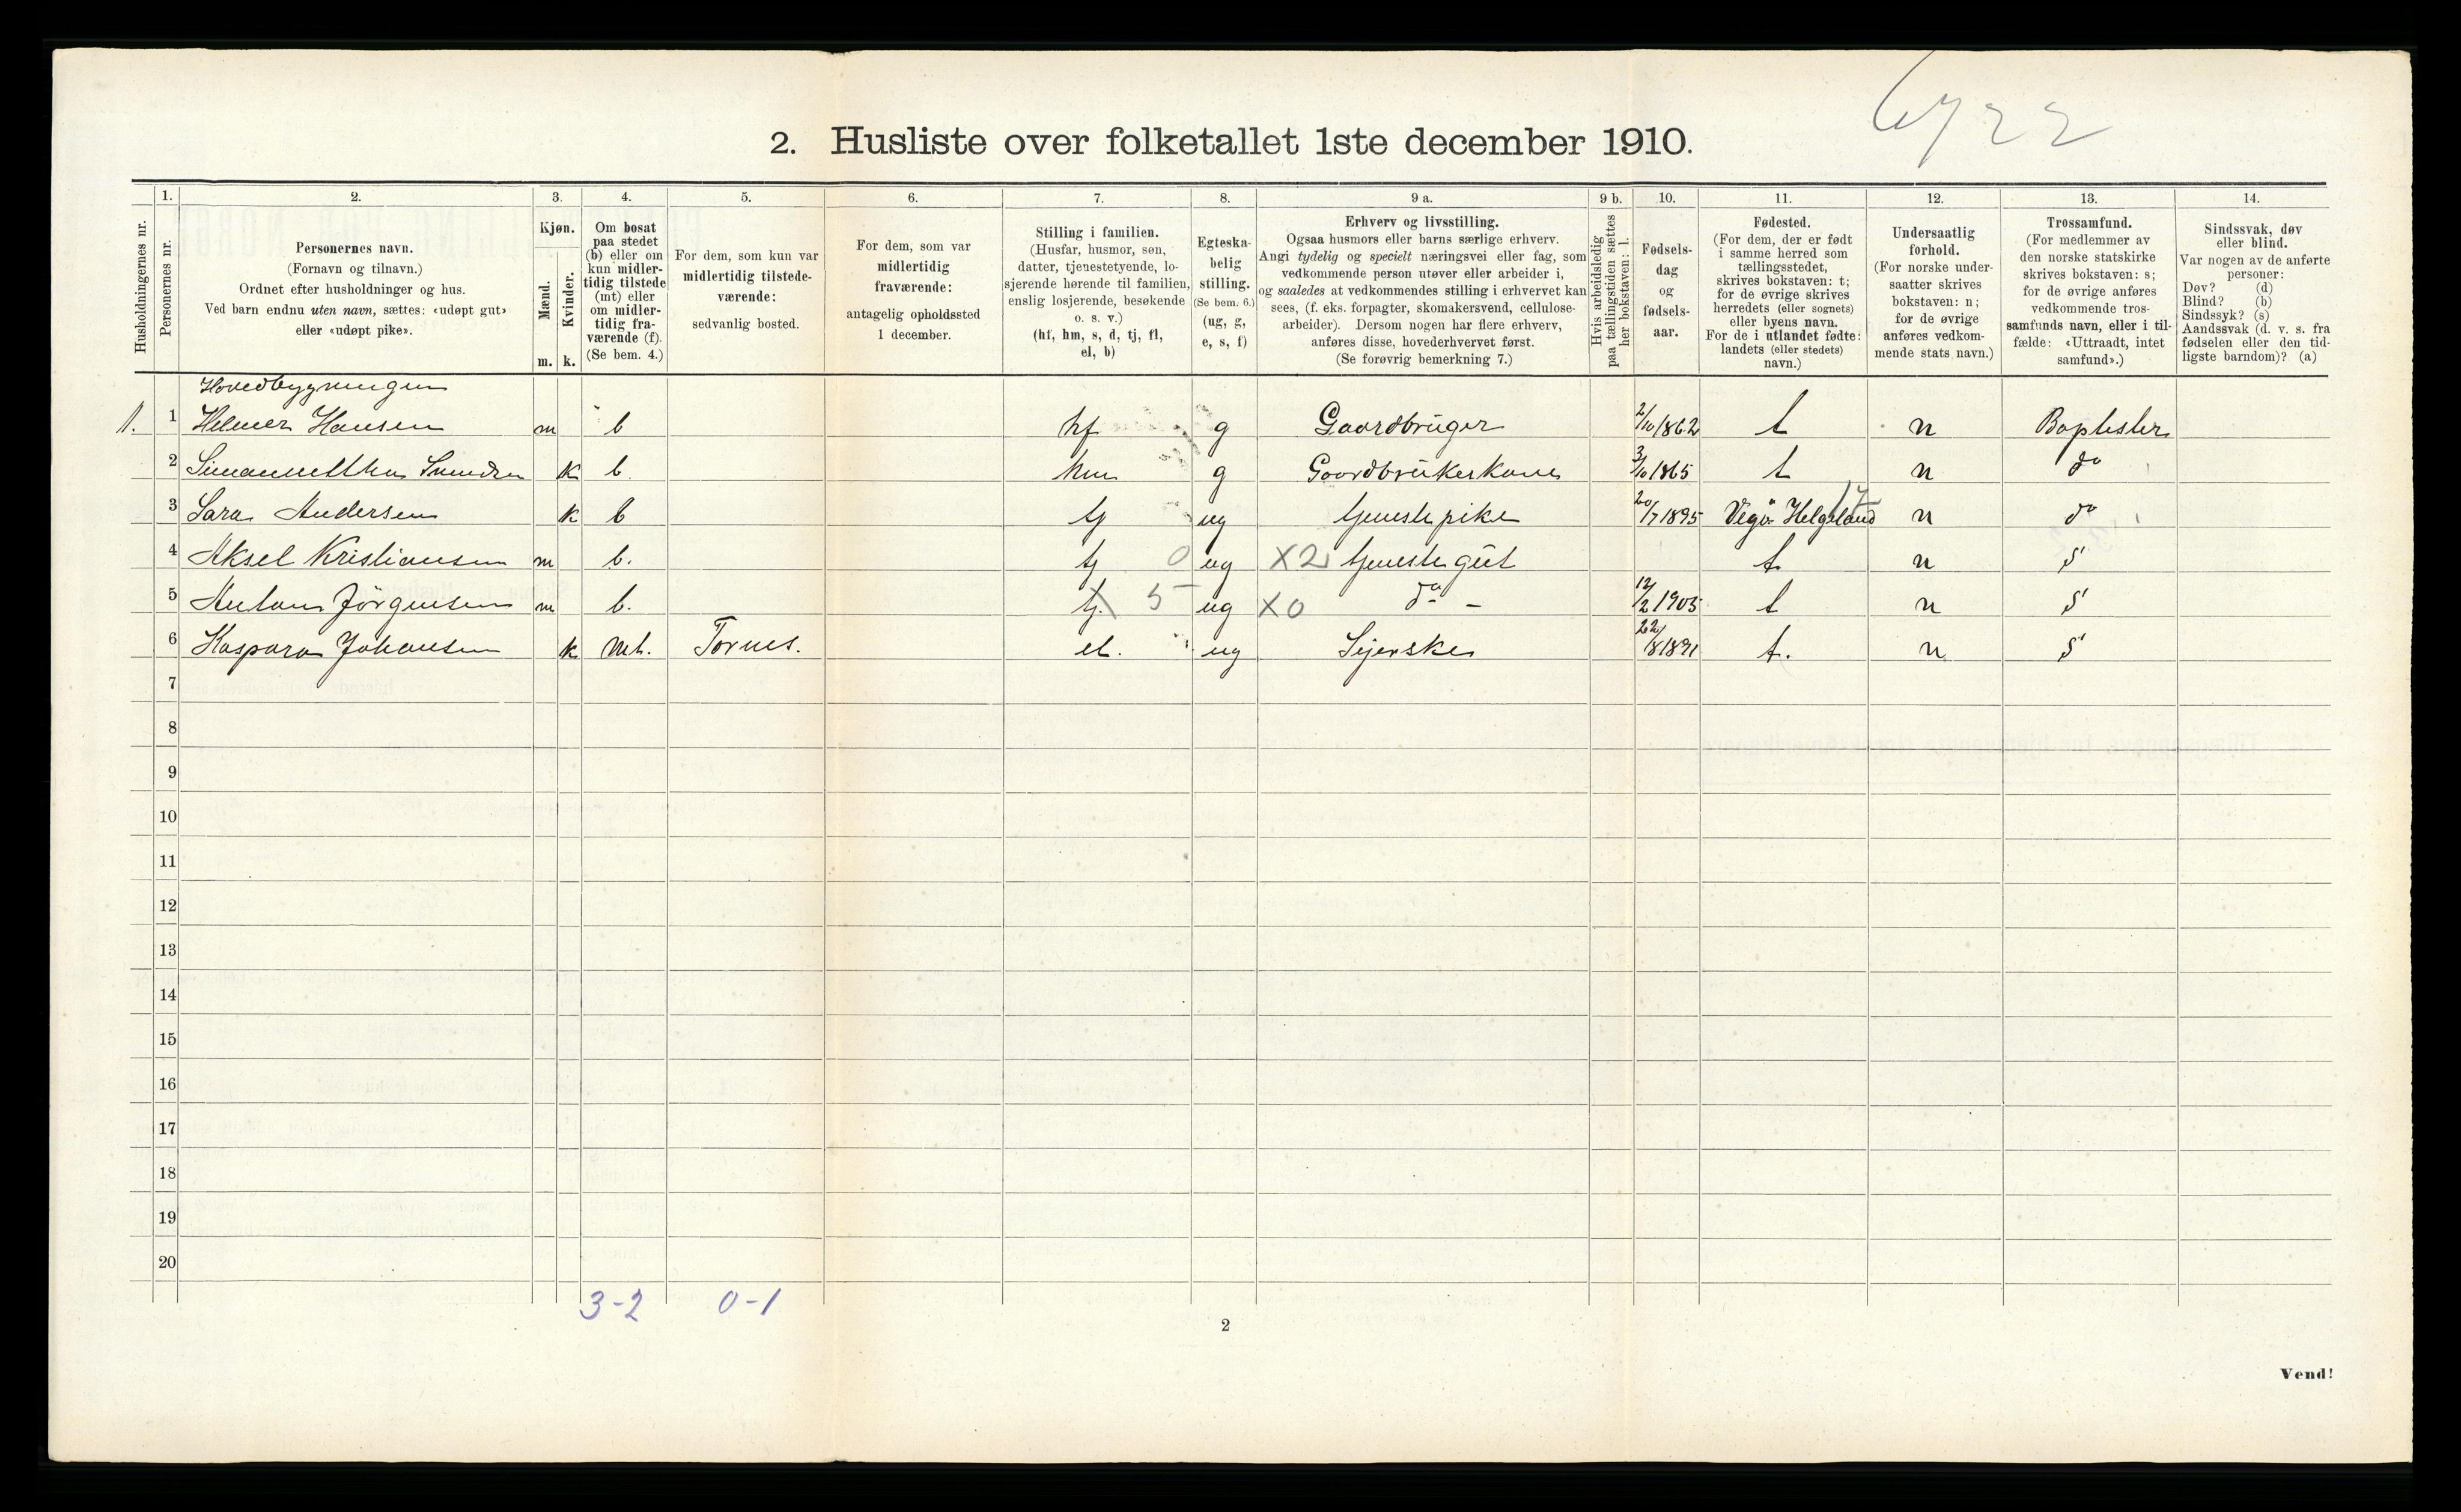 6722
2. Husliste over folketallet 1ste december 1910.
Husholdningernes nr.
1.
Personernes nr.
2.
Personernes navn.
(Fornavn og tilnavn.)
Ordnet efter husholdninger og hus.
Ved barn endnu uten navn, sættes: «udøpt gut»
eller «udøpt pike».
3.
Kjøn.
Mænd.
m.
Kvinder.
k.
4.
Om bosat
paa stedet
(b) eller om
kun midler-
tidig tilstede
(mt) eller
om midler-
tidig fra-
værende (f).
(Se bem. 4.)
5.
For dem, som kun var
midlertidig tilstede-
værende:
sedvanlig bosted.
6.
For dem, som var
midlertidig
fraværende:
antagelig opholdssted
1 december.
7.
Stilling i familien.
(Husfar, husmor, søn,
datter, tjenestetyende, lo-
sjerende hørende til familien,
enslig losjerende, besøkende
o. s. v.)
(hf, hm, s, d, tj, fl,
el, b)
8.
Egteska-
belig
stilling.
(Se bem. 6.)
(ug, g,
e, s, f)
9 a.
Erhverv og livsstilling.
Ogsaa husmors eller barns særlige erhverv.
Angi tydelig og specielt næringsvei eller fag, som
vedkommende person utøver eller arbeider i,
og saaledes at vedkommendes stilling i erhvervet kan
sees, (f. eks. forpagter, skomakersvend, cellulose-
arbeider). Dersom nogen har flere erhverv,
anføres disse, hovederhvervet først.
(Se forøvrig bemerkning 7.)
9 b.
Hvis arbeidsledig
paa tællingstiden sættes
her bokstaven: l.
10.
Fødsels-
dag
og
fødsels-
aar.
11.
Fødested.
(For dem, der er født
i samme herred som
tællingsstedet,
skrives bokstaven: t;
for de øvrige skrives
herredets (eller sognets)
eller byens navn.
For de i utlandet fødte:
landets (eller stedets)
navn.)
12.
Undersaatlig
forhold.
(For norske under-
saatter skrives
bokstaven: n;
for de øvrige
anføres vedkom-
mende stats navn.)
13.
Trossamfund.
(For medlemmer av
den norske statskirke
skrives bokstaven: s;
for de øvrige anføres
vedkommende tros-
samfunds navn, eller i til-
fælde: «Uttraadt, intet
samfund».)
14.
Sindssvak, døv
eller blind.
Var nogen av de anførte
personer:
Døv? (d)
Blind? (b)
Sindssyk? (s)
Aandssvak (d. v. s. fra
fødselen eller den tid-
ligste barndom)? (a)
Hovedbygningen
1. 1 Helmer Hansen m b hf g Gaardbruger 2/10 1862 t n Baptister
2 k b. hm g Gaardbrukerkone 3/10 1865 t n do
3 Sara Andersen k b tj ug tjenestepike 20/7 1895 Vegø Helgeland 17 n do
4 Aksel Kristiansen m b. tj 0 ug X2 tjenestegut t n s
5 Anton Jørgensen m b. tj. 5 ug X0 do - 12/2 1905 t n s
6 Kaspara Johansen k mt. Tornes. el. ug Sjerske 22/8 1891 t. n s
7
8
9
10
11
12
13
14
15
16
17
18
19
20
3-2 0-1
2
Vend!